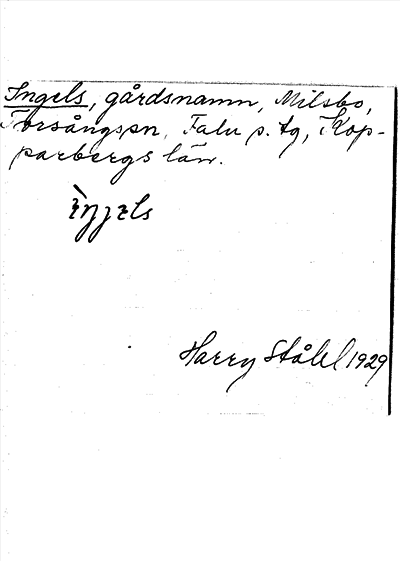 Ingels, gårdsnamn, Milsbo,
Torsångs sn, Falu p. tg, Kop-
parbergs län.
Harry Ståhl 1929